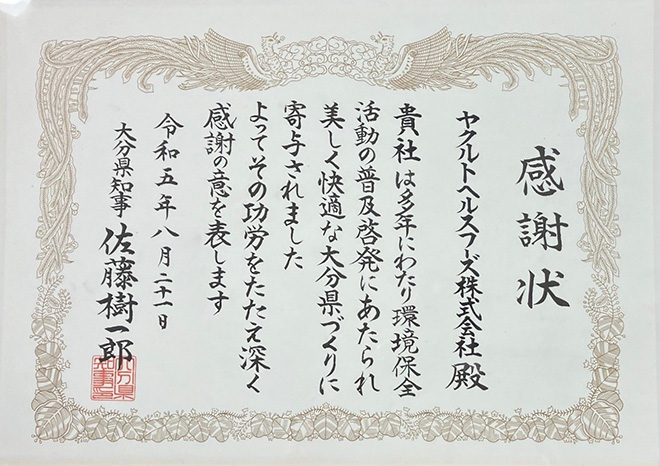 感謝状
ヤクルトヘルスフーズ株式会社殿
貴社は多年にわたり環境保全
活動の普及啓発にあたられ
美しく快適な大分県づくりに
寄与されました
よってその功労をたたえ深く
感謝の意を表します
令和五年八月二十一日
大分県知事 佐藤樹一郎
大分県知事印